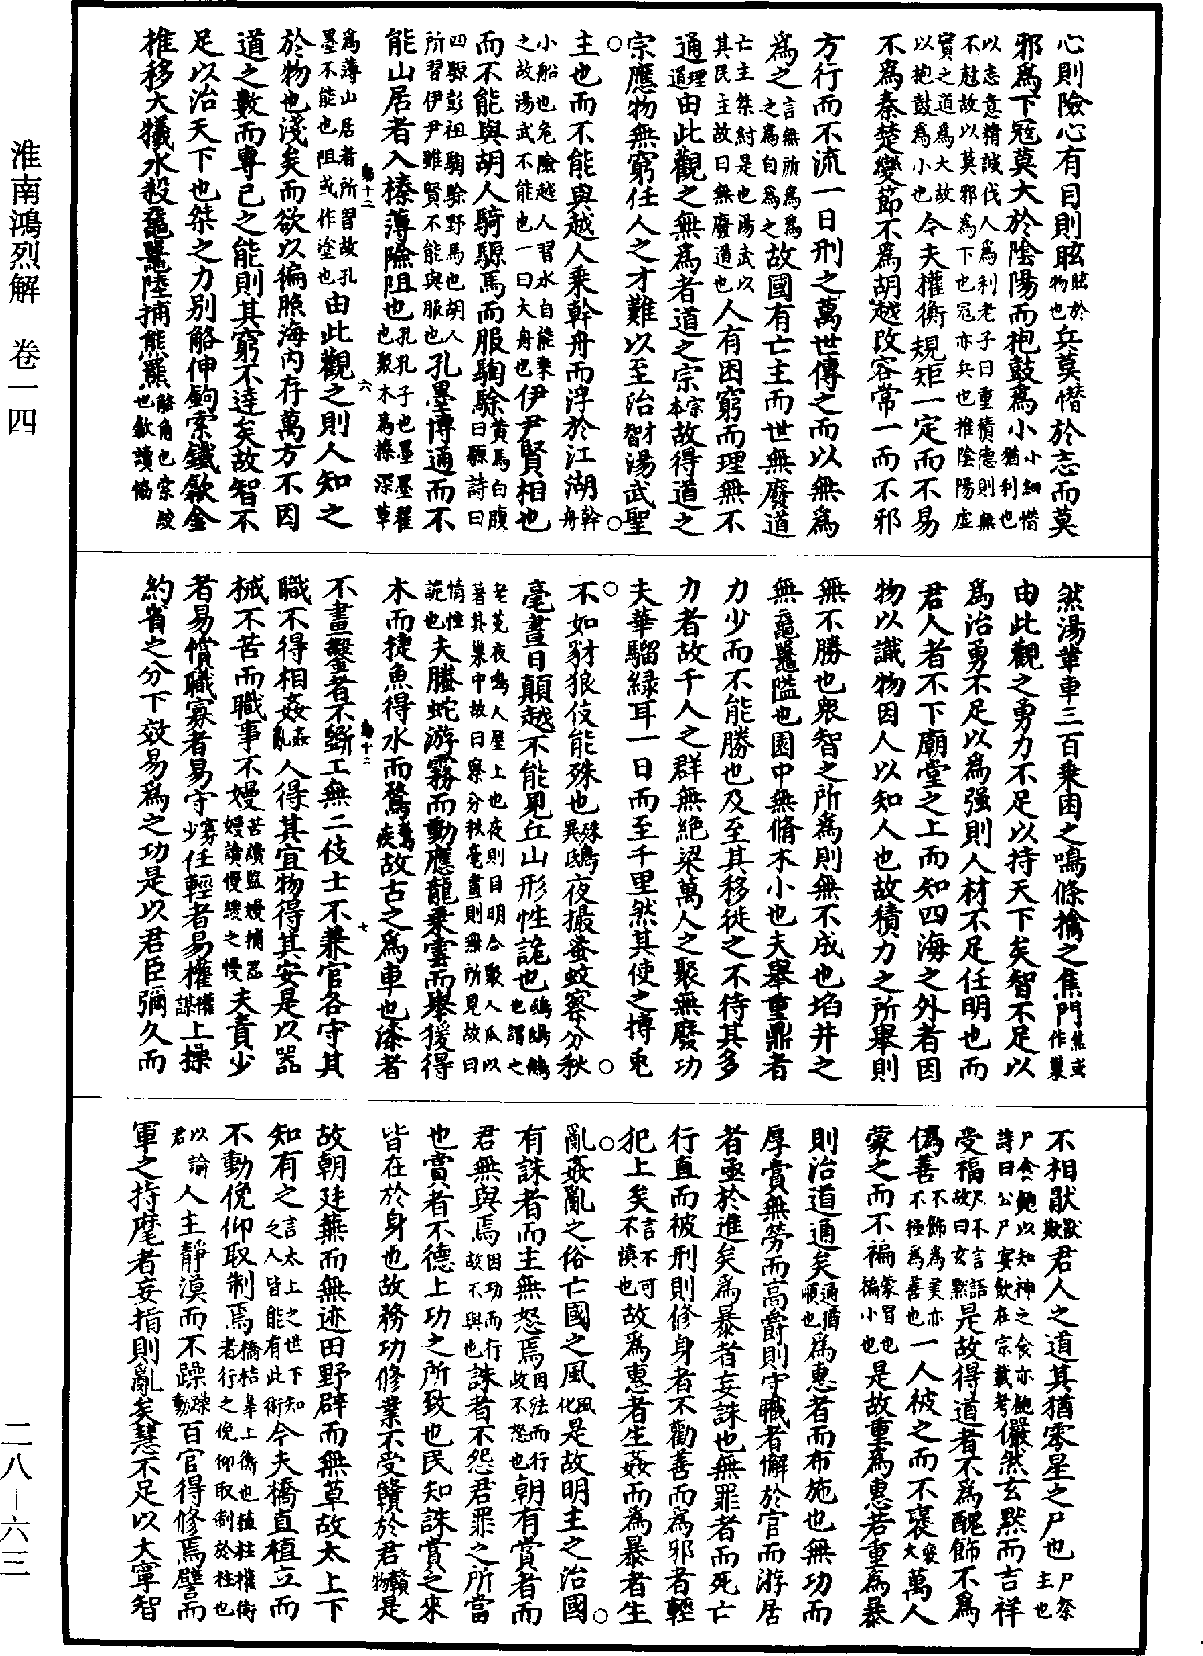 淮南鴻烈解　卷一四
二八—六三
心則險心有目則眩眩於物也兵莫憯於志而莫
邪為下寇莫大於陰陽而枹鼓為小小細憯猶利也
以志意精誠伐人為利老子曰重積德則無不尅故以莫邪為下也寇亦兵也推陰陽虛
實之道為大故以枹鼓為小也今夫權衡規矩一定而不易
不為秦楚變節不為胡越改容常一而不邪
方行而不流一日刑之萬世傳之而以無為
為之言無所為為之之為自為之故國有亡主而世無廢道
亡主桀紂是也湯武以其民主故曰無廢道也人有困窮而理無不
通理道由此觀之無為者道之宗宗本故得道之
宗應物無窮任人之才難以至治才智湯武聖
主也而不能與越人乘幹舟而浮於江湖幹舟
小船也危險越人習水自能乘之故湯武不能也一曰大舟也伊尹賢相也
而不能與胡人騎騵馬而服騊駼黃馬白腹曰騵詩曰
四騵彭彭騊駼野馬也胡人所習伊尹雖賢不能與服也孔墨博通而不
能山居者入榛薄險阻也孔孔子也墨墨翟也聚木為榛深草
為薄山居者所習故孔墨不能也阻或作塗也由此觀之則人知之
於物也淺矣而欲以徧照海內存萬方不因
道之數而專己之能則其窮不達矣故智不
足以治天下也桀之力別觡伸鉤索鐵歙金
推移大犧水殺黿鼉陸捕熊羆觡角也索絞也歙讀協
然湯革車三百乘困之鳴條擒之焦門焦或作巢
由此觀之勇力不足以持天下矣智不足以
為治勇不足以為强則人材不足任明也而
君人者不下廟堂之上而知四海之外者因
物以識物因人以知人也故積力之所舉則
無不勝也衆智之所為則無不成也埳井之
無黿鼉隘也園中無脩木小也夫舉重鼎者
力少而不能勝也及至其移徙之不待其多
力者故千人之群無絕梁萬人之聚無廢功
夫華騮緑耳一日而至千里然其使之搏兔
不如豺狼伎能殊也殊異鴟夜撮蚤蚊察分秋
毫晝日顛越不能見丘山形性詭也鴟鴟鵂也謂之
老菟夜鳴人屋上也夜則目明合聚人爪以著其巢中故曰察分秋毫晝則無所見故曰
情性詭也夫螣蛇游霧而動應龍乘雲而舉猨得
木而捷魚得水而騖騖疾故古之為車也漆者
不畫鑿者不斲工無二伎士不兼官各守其
職不得相姦姦亂人得其宜物得其安是以器
械不苦而職事不嫚苦讀盬嫚捕器嫚讀慢緩之慢夫責少
者易償職寡者易守寡少任輕者易權權謀上操
約省之分下效易為之功是以君臣彌久而
不相猒猒欺君人之道其猶零星之尸也尸祭主也
尸食飽以知神之食亦飽詩曰公尸宴飲在宗載考儼然玄默而吉祥
受福尸不言語故曰玄默是故得道者不為醜飾不為
偽善不飾為美亦不極為善也一人被之而不褒褒大萬人
蒙之而不褊蒙冒也褊小也是故重為惠若重為暴
則治道通矣通猶順也為惠者而布施也無功而
厚賞無勞而高爵則守職者懈於官而游居
者亟於進矣為暴者妄誅也無罪者而死亡
行直而被刑則修身者不勸善而為邪者輕
犯上矣言不可不慎也故為惠者生姦而為暴者生
亂姦亂之俗亡國之風風化是故明主之治國
有誅者而主無怒焉因法而行故不怒也朝有賞者而
君無與焉因功而行故不與也誅者不怨君罪之所當
也賞者不德上功之所致也民知誅賞之來
皆在於身也故務功修業不受贛於君贛物是
故朝廷蕪而無迹田野辟而無草故太上下
知有之言太上之世下知之人皆能有此術今夫橋直植立而
不動俛仰取制焉橋桔臯上衡也植柱權衡者行之俛仰取制於柱也
以諭君人主靜漠而不躁躁動百官得修焉譬而
軍之持麾者妄指則亂矣慧不足以大寧智